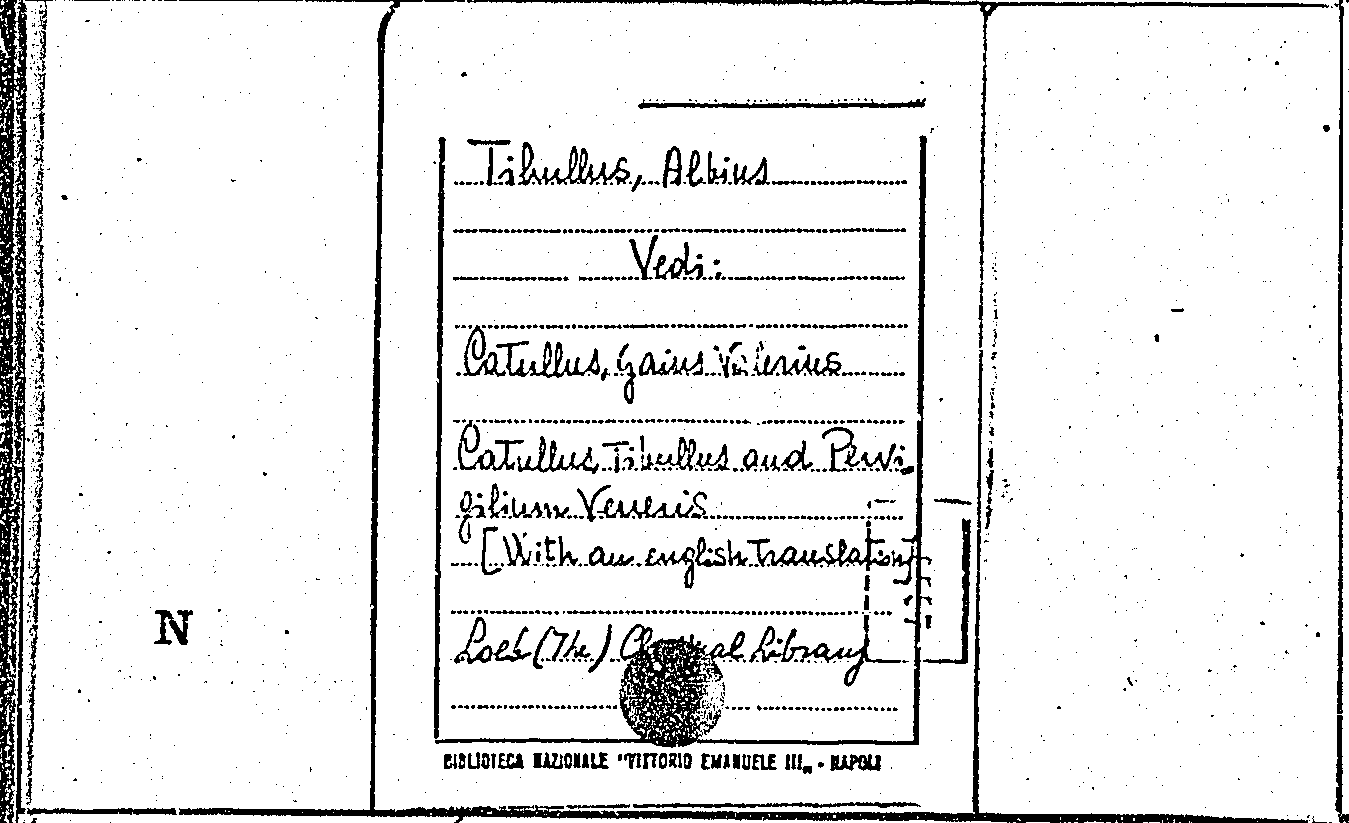 Tibullus, Albius
Vedi:
Catullus, Gaius Valerius
Catullus, Tibullus and Pervi-
gilium Veneris
[With an english translation]
N
Loeb (The) Classical Library
BIBLIOTECA NAZIONALE "VITTORIO EMANUELE III„ - NAPOLI